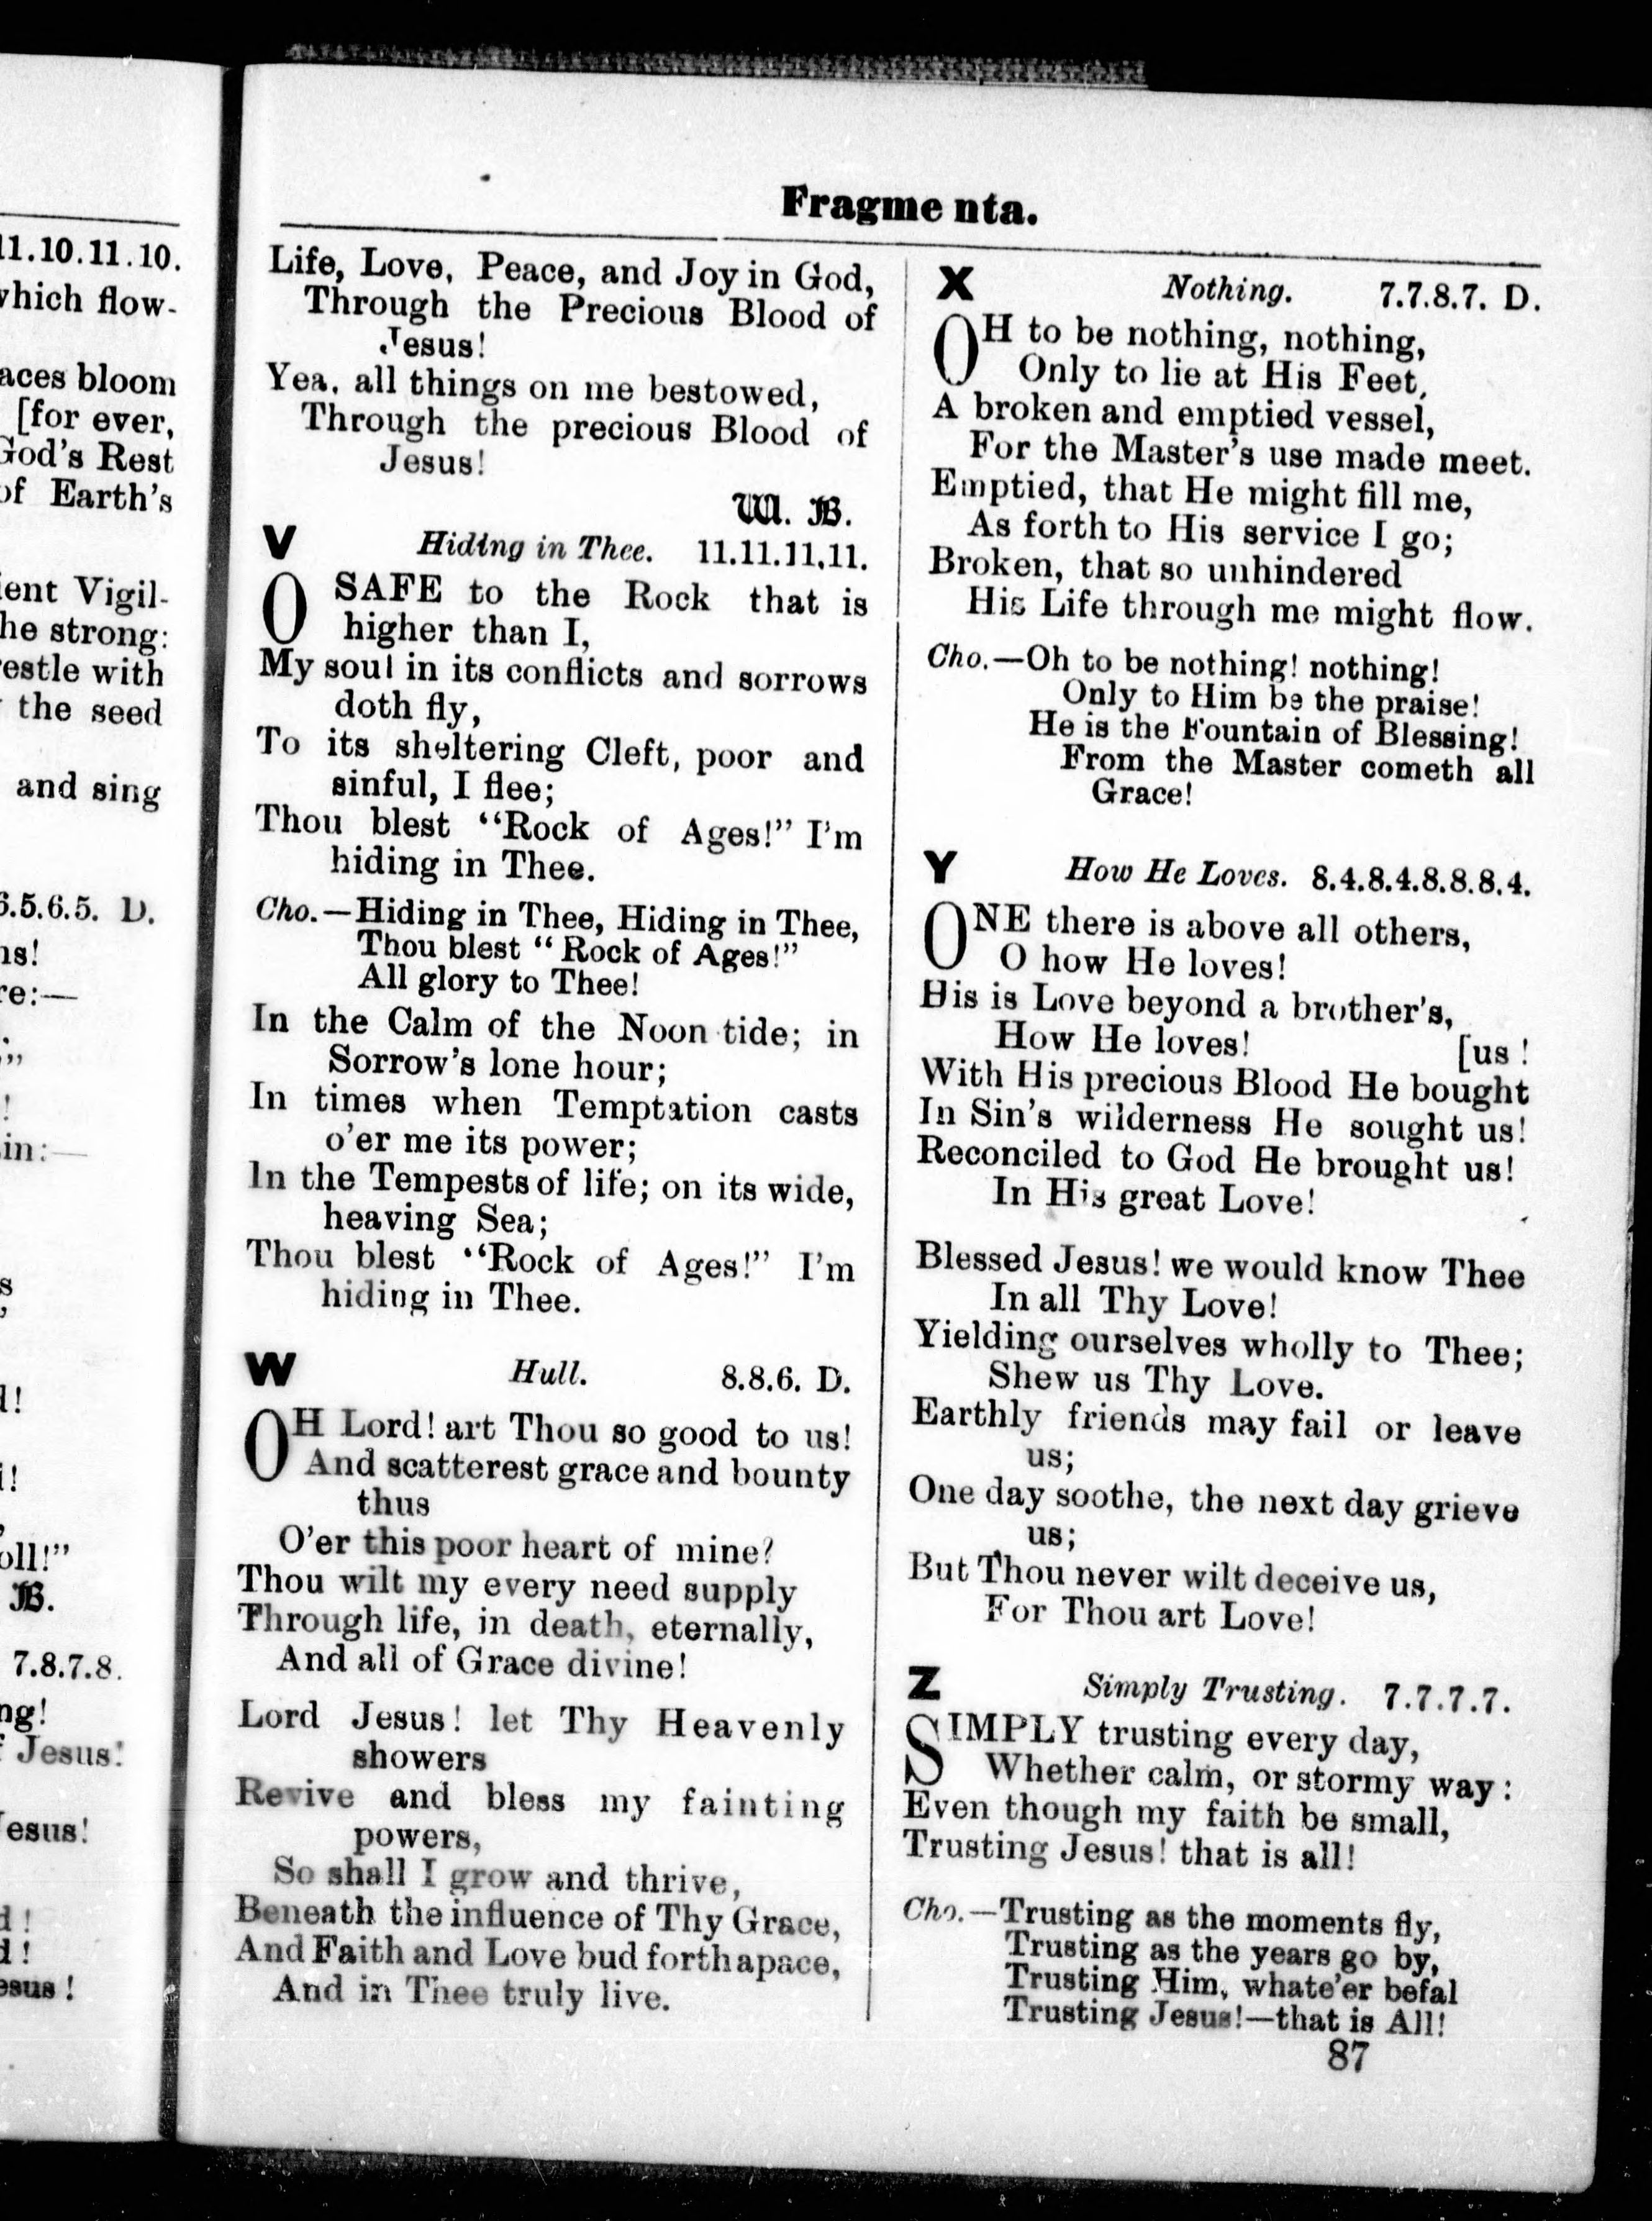 11.10.11.10.
which flow-
aces bloom
[for ever,
God's Rest
of Earth's
ient Vigil-
he strong:
estle with
the seed
and sing
6.5.6.5. D.
ns!
re:—
;"
!
in:—
s
,
d!
i!
,
oll!"
B.
7.8.7.8.
ng!
f Jesus!
Jesus!
d!
d!
esus!
Fragme nta.
Life, Love, Peace, and Joy in God,
Through the Precious Blood of
Jesus!
Yea, all things on me bestowed,
Through the precious Blood of
Jesus!
W. B.
V Hiding in Thee. 11.11.11.11.
O SAFE to the Rock that is
higher than I,
My soul in its conflicts and sorrows
doth fly,
To its sheltering Cleft, poor and
sinful, I flee;
Thou blest "Rock of Ages!" I'm
hiding in Thee.
Cho.—Hiding in Thee, Hiding in Thee,
Thou blest "Rock of Ages!"
All glory to Thee!
In the Calm of the Noon tide; in
Sorrow's lone hour;
In times when Temptation casts
o'er me its power;
In the Tempests of life; on its wide,
heaving Sea;
Thou blest "Rock of Ages!" I'm
hiding in Thee.
W Hull. 8.8.6. D.
OH Lord! art Thou so good to us!
And scatterest grace and bounty
thus
O'er this poor heart of mine?
Thou wilt my every need supply
Through life, in death, eternally,
And all of Grace divine!
Lord Jesus! let Thy Heavenly
showers
Revive and bless my fainting
powers,
So shall I grow and thrive,
Beneath the influence of Thy Grace,
And Faith and Love bud forth apace,
And in Thee truly live.
X Nothing. 7.7.8.7. D.
OH to be nothing, nothing,
Only to lie at His Feet,
A broken and emptied vessel,
For the Master's use made meet.
Emptied, that He might fill me,
As forth to His service I go;
Broken, that so unhindered
His Life through me might flow.
Cho.—Oh to be nothing! nothing!
Only to Him be the praise!
He is the Fountain of Blessing!
From the Master cometh all
Grace!
Y How He Loves. 8.4.8.4.8.8.8.4.
ONE there is above all others,
O how He loves!
His is Love beyond a brother's,
How He loves! [us!
With His precious Blood He bought
In Sin's wilderness He sought us!
Reconciled to God He brought us!
In His great Love!
Blessed Jesus! we would know Thee
In all Thy Love!
Yielding ourselves wholly to Thee;
Shew us Thy Love.
Earthly friends may fail or leave
us;
One day soothe, the next day grieve
us;
But Thou never wilt deceive us,
For Thou art Love!
Z Simply Trusting. 7.7.7.7.
SIMPLY trusting every day,
Whether calm, or stormy way:
Even though my faith be small,
Trusting Jesus! that is all!
Cho.—Trusting as the moments fly,
Trusting as the years go by,
Trusting Him, whate'er befal
Trusting Jesus!—that is All!
87